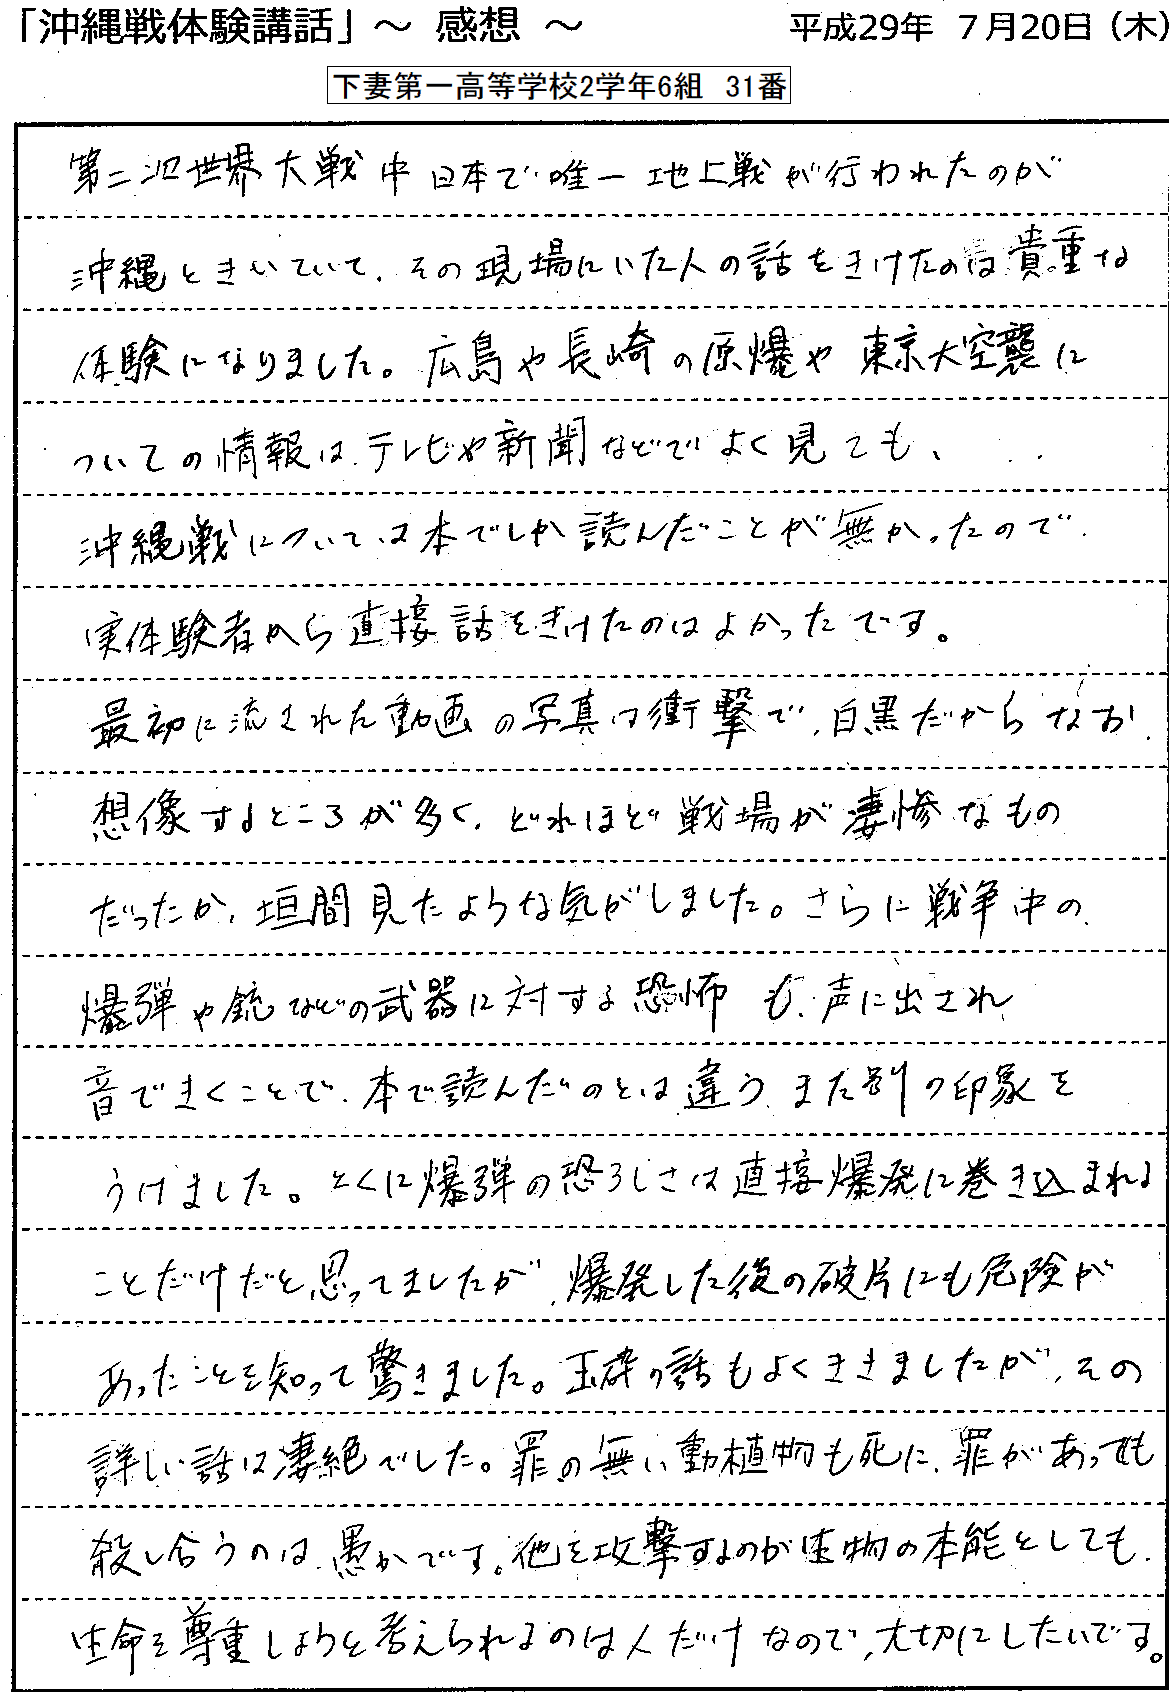 「沖縄戦体験講話」～ 感想 ～ 平成29年 7月20日（木）
下妻第一高等学校2学年6組 31番
第二次世界大戦中日本で唯一地上戦が行われたのが
沖縄ときいていて、その現場にいた人の話をきけたのは貴重な
体験になりました。広島や長崎の原爆や東京大空襲に
ついての情報はテレビや新聞などでよく見ても、
沖縄戦については本でしか読んだことが無かったので
実体験者から直接話をきけたのはよかったです。
最初に流された動画の写真は衝撃で、白黒だからなお
想像するところが多く、どれほど戦場が凄惨なもの
だったか、垣間見たような気がしました。さらに戦争中の
爆弾や銃などの武器に対する恐怖も、声に出され
音できくことで、本で読んだのとは違う、また別の印象を
うけました。とくに爆弾の恐ろしさは直接爆発に巻き込まれる
ことだけだと思ってましたが、爆発した後の破片にも危険が
あったことを知って驚きました。玉砕の話もよくききましたが、その
詳しい話は凄絶でした。罪の無い動植物も死に、罪があっても
殺し合うのは愚かです。他を攻撃するのが生物の本能としても、
生命を尊重しようと考えられるのは人だけなので、大切にしたいです。